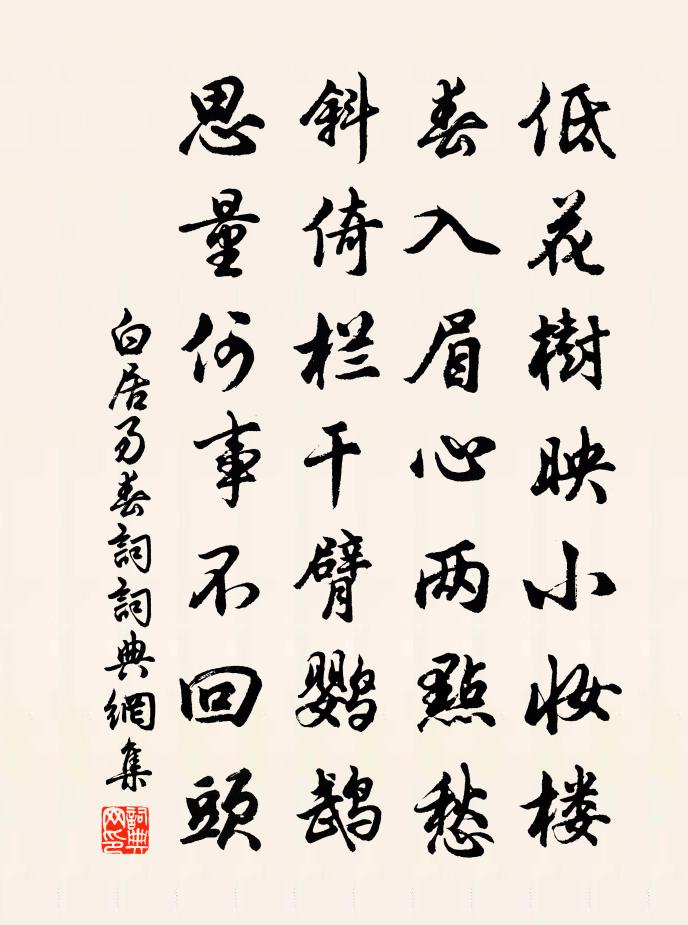 低花樹映小妆楼
春入眉心两點愁
斜倚栏干臂鹦鹉
思量何事不回頭
白居易春詞詞典網集
詞典网印